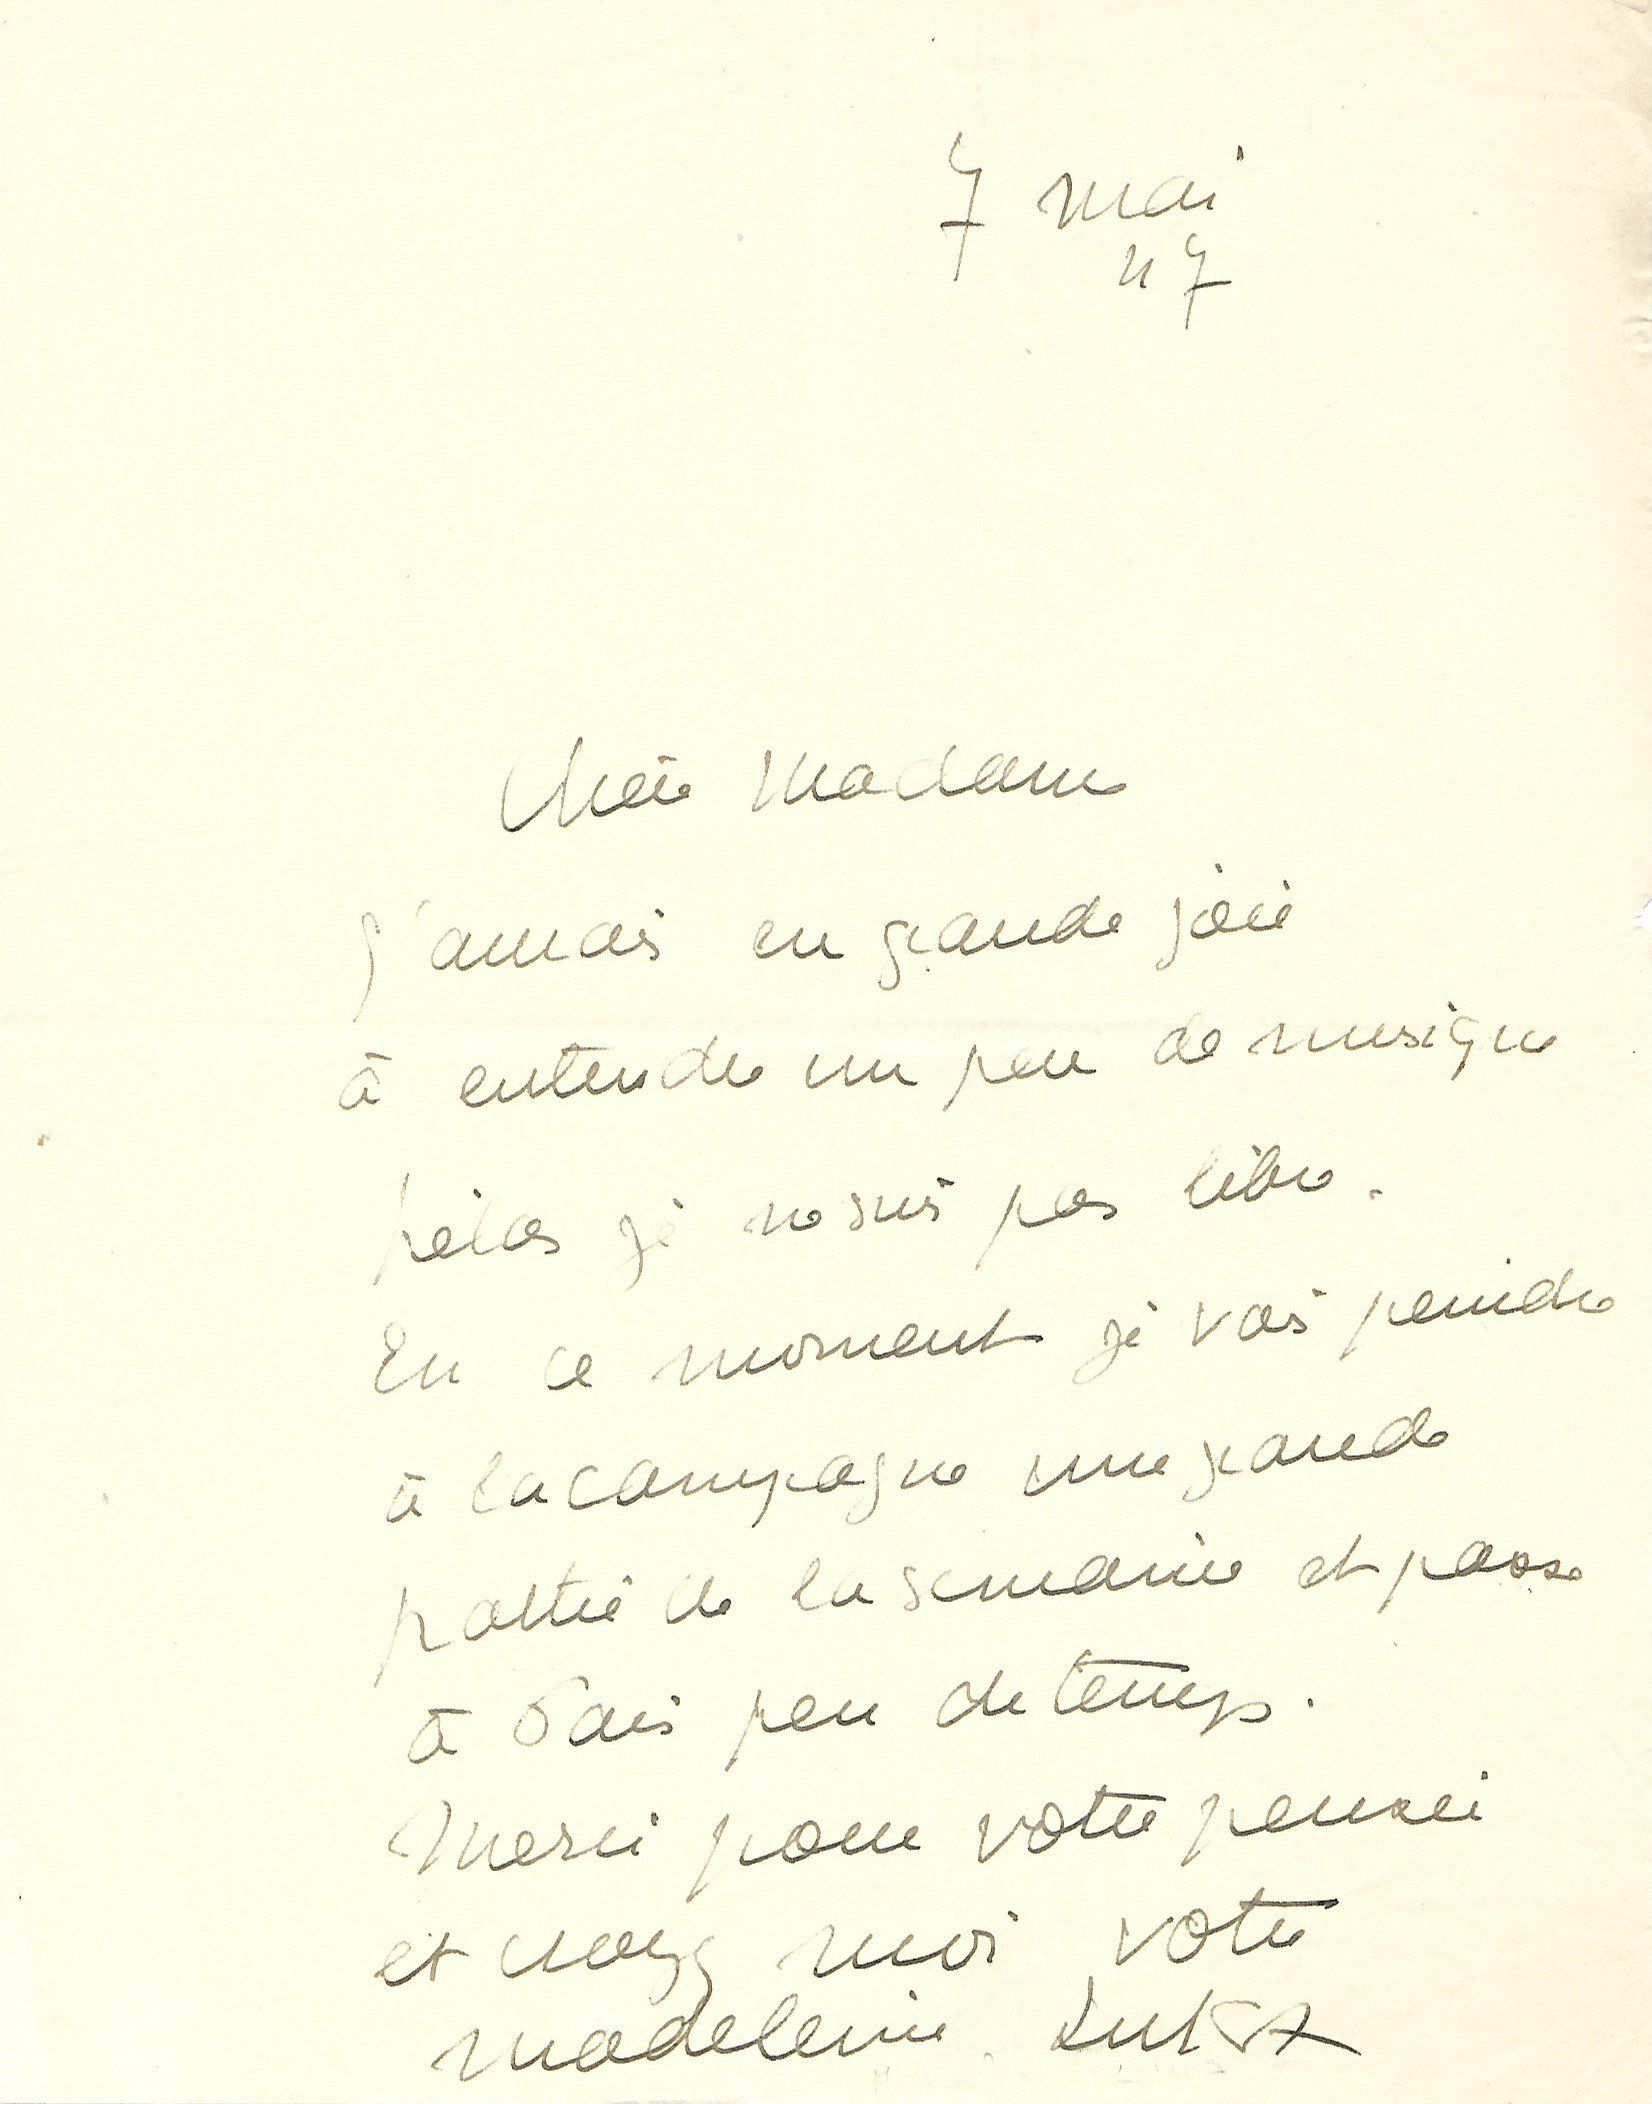 7 mai
47
Chère Madame
J'aurais eu grande joie
à entendre un peu de musique
hélas je ne suis pas libre.
En ce moment je vais peindre
à la campagne une grande
partie de la semaine et passe
à Paris peu de temps.
Merci pour votre pensée
et croyez moi votre
Madeleine Luka